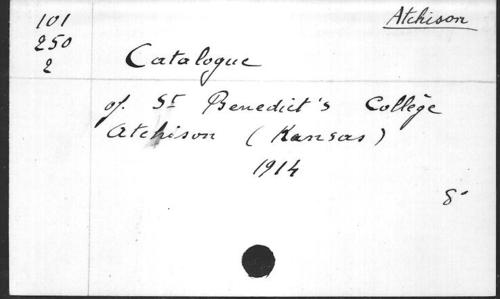 101
250
2
Atchison
Catalogue
of St Benedict's Collège
Atchison (Kansas)
1914
8°